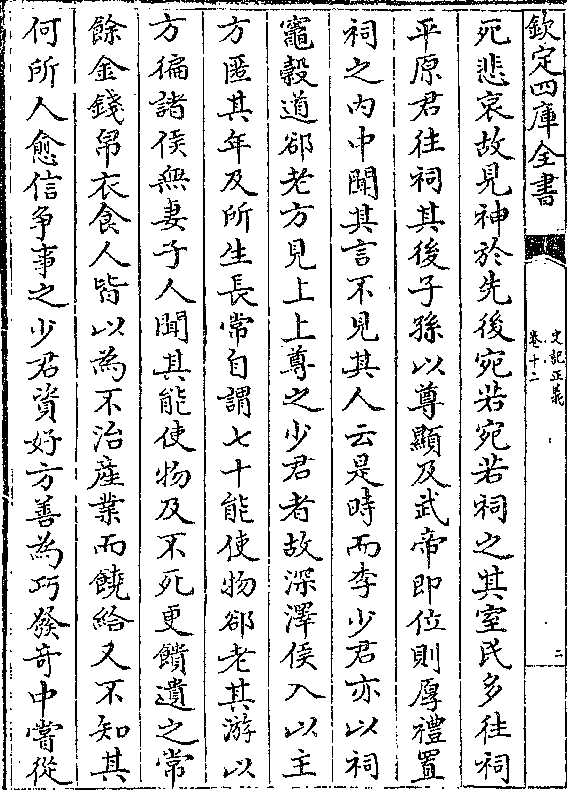 欽定四庫全書
史記正義
卷十二
二
死悲哀故見神於先後宛若宛若祠之其室民多往祠
平原君往祠其後子孫以尊顯及武帝即位則厚禮置
祠之内中聞其言不見其人云是時而李少君亦以祠
竈穀道郤老方見上上尊之少君者故深澤侯入以主
方匿其年及所生長常自謂七十能使物郤老其游以
方徧諸侯無妻子人聞其能使物及不死更饋遺之常
餘金錢帛衣食人皆以為不治產業而饒給又不知其
何所人愈信爭事之少君資好方善為巧發奇中嘗從